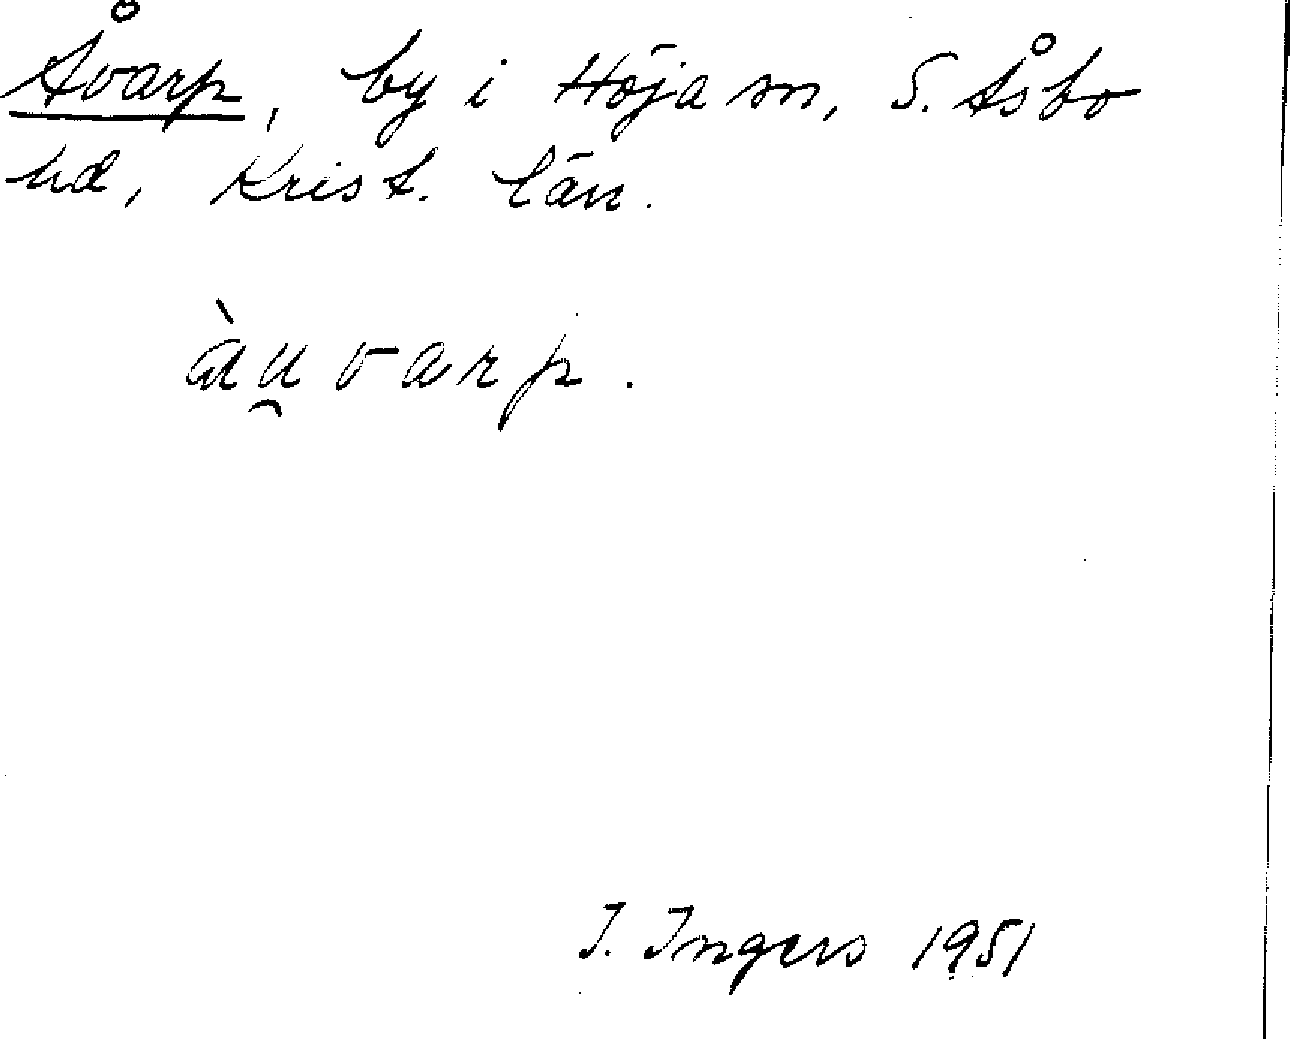 Åvarp, by i Höja sn, S. Åsbo
hd, Krist. län.
àu̯varp.
I. Ingers 1951